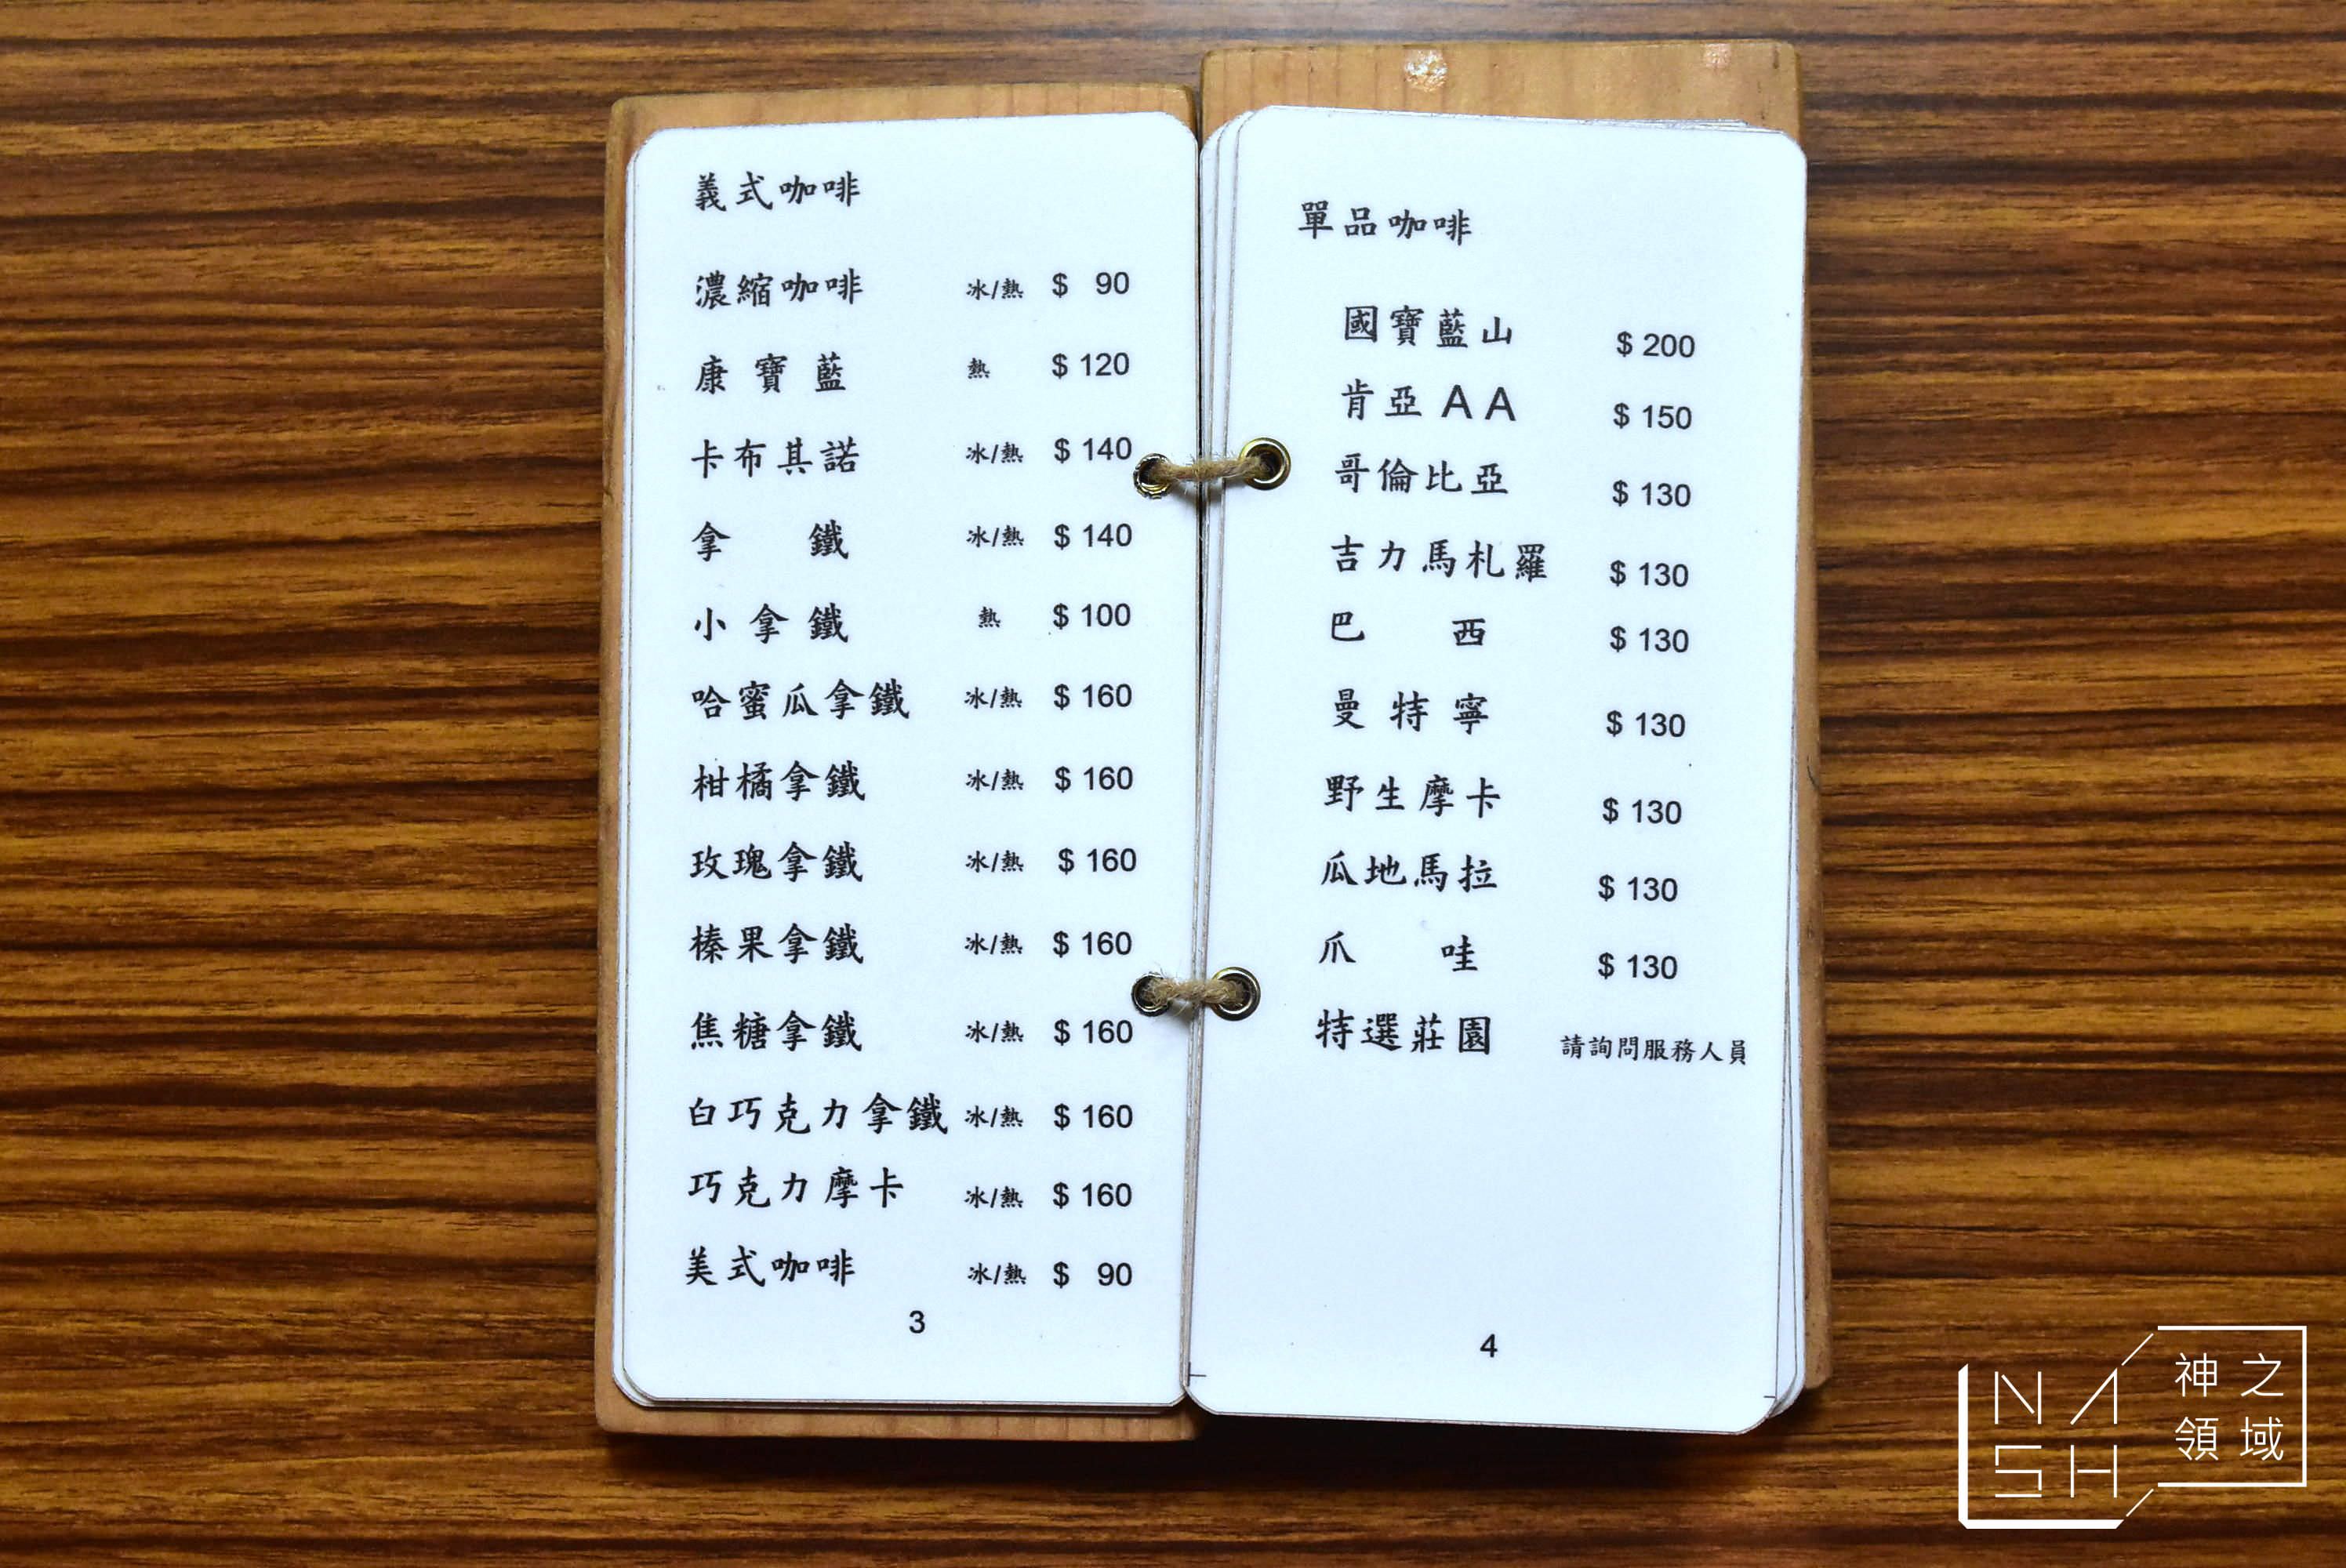 義式咖啡
濃縮咖啡 冰/熱 $ 90
康寶藍 熱 $ 120
卡布其諾 冰/熱 $ 140
拿鐵 冰/熱 $ 140
小拿鐵 熱 $ 100
哈蜜瓜拿鐵 冰/熱 $ 160
柑橘拿鐵 冰/熱 $ 160
玫瑰拿鐵 冰/熱 $ 160
榛果拿鐵 冰/熱 $ 160
焦糖拿鐵 冰/熱 $ 160
白巧克力拿鐵 冰/熱 $ 160
巧克力摩卡 冰/熱 $ 160
美式咖啡 冰/熱 $ 90
3
單品咖啡
國寶藍山 $ 200
肯亞AA $ 150
哥倫比亞 $ 130
吉力馬札羅 $ 130
巴西 $ 130
曼特寧 $ 130
野生摩卡 $ 130
瓜地馬拉 $ 130
爪哇 $ 130
特選莊園 請詢問服務人員
4
NASH
神之
領域